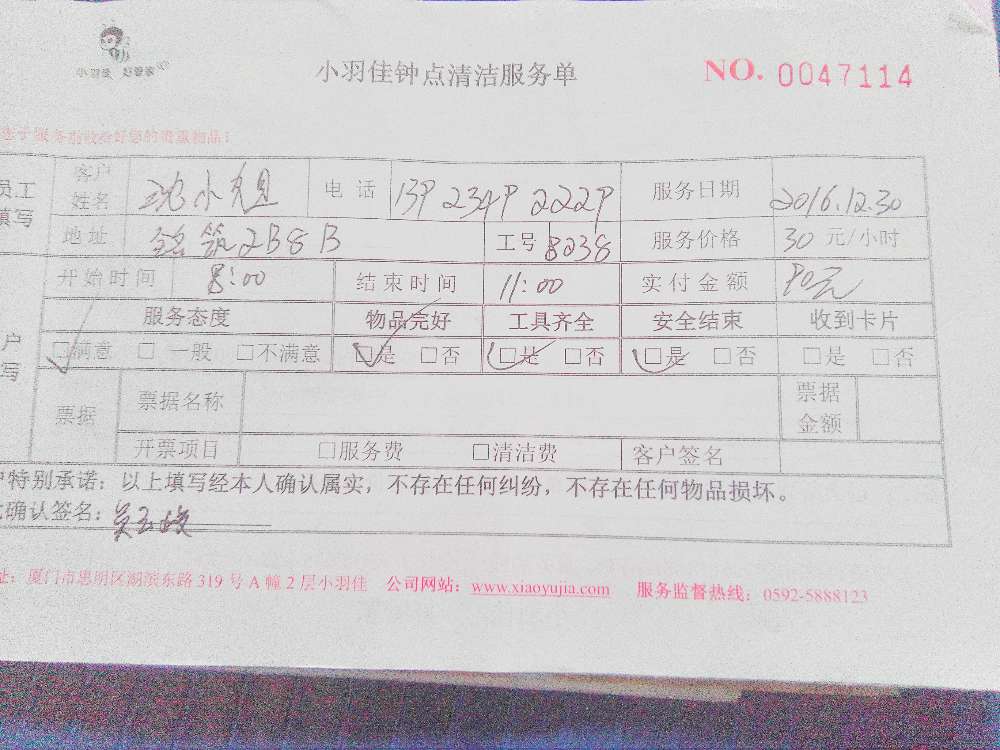 小羽佳 好管家
小羽佳钟点清洁服务单 NO. 0047114
您于服务前收好您的贵重物品：
员工填写 客户姓名 沈小姐 电话 服务日期 2016.12.30
地址 铭筑2B8B 工号 8238 服务价格 30 元/小时
开始时间 8:00 结束时间 11:00 实付金额 90元
服务态度 物品完好 工具齐全 安全结束 收到卡片
户写 ☑满意 □一般 □不满意 ☑是 □否 ☑是 □否 ☑是 □否 □是 □否
票据 票据名称 票据金额
开票项目 □服务费 □清洁费 客户签名
户特别承诺：以上填写经本人确认属实，不存在任何纠纷，不存在任何物品损坏。
确认签名：
址：厦门市思明区湖滨东路 319 号 A 幢 2 层小羽佳 公司网站：www.xiaoyujia.com 服务监督热线：0592-5888123